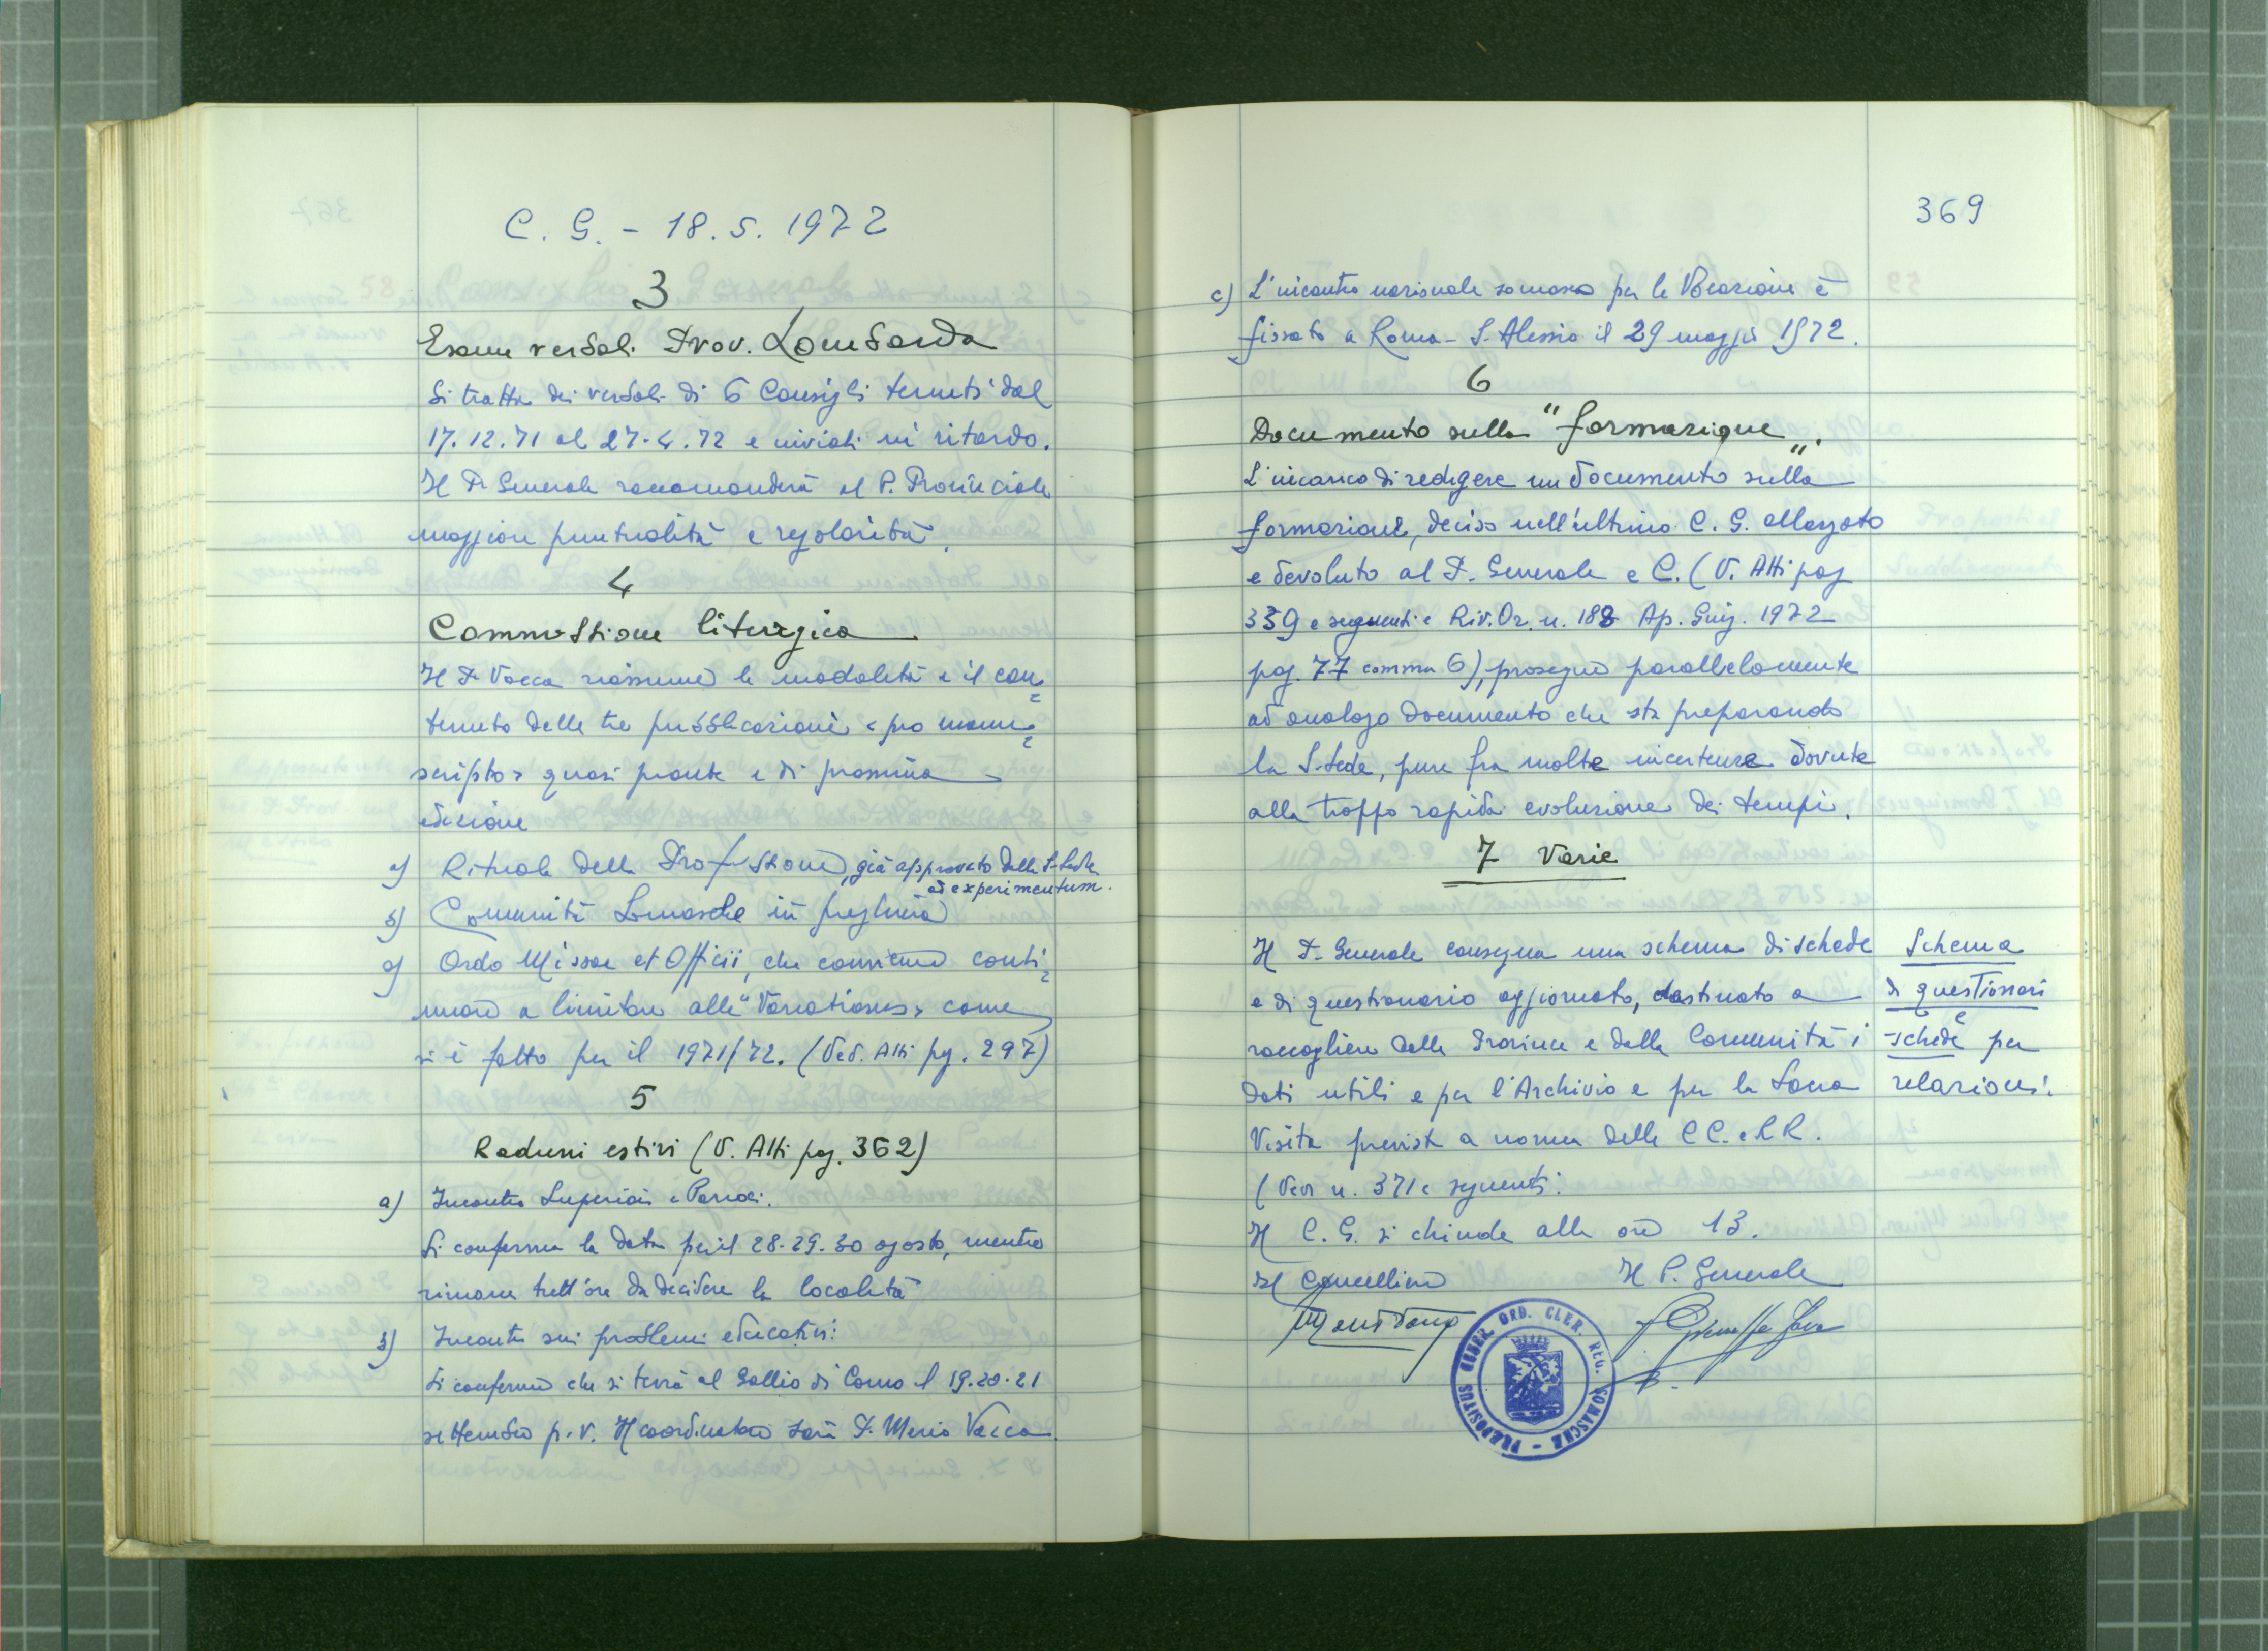 C. G. - 18. 5. 1972
3
Esame verbali Prov. Lombarda
Si tratta dei verbali di 6 Consigli tenuti dal
17. 12. 71 al 27. 4. 72 e inviati in ritardo.
Il P. Generale raccomanderà al P. Provinciale
maggiore puntualità e regolarità.
4
Commissione liturgica
Il P. Vacca riassume le modalità e il con=
tenuto delle tre pubblicazioni "pro manu=
scripto" quasi pronte e di prossima
edizione
a) Rituale della Professione, già approvato dalla S. Sede
ad experimentum.
b) Comunità Somasche in preghiera
c) Ordo Missae et Officii, che conviene conti=
nuare a limitare alle "Variationes" come
si è fatto per il 1971/72. (Ved. Atti pg. 297)
5
Raduni estivi (V. Atti pag. 362)
a) Incontro Superiori e Parroci.
Si conferma la data per il 28-29-30 agosto, mentre
rimane tutt'ora da decidere la località
b) Incontro sui problemi educativi:
Si conferma che si terrà al Gallio di Como il 19-20-21
settembre p. v. Il coordinatore sarà P. Mario Vacca.
369
c) L'incontro nazionale somasco per le Vocazioni è
fissato a Roma - S. Alessio il 29 maggio 1972.
6
Documento sulla "formazione".
L'incarico di redigere un documento sulla
formazione, deciso nell'ultimo C. G. allargato
e devoluto al P. Generale e C. (V. Atti pag
339 e seguenti e Riv. Or. n. 188 Ap. Giug. 1972
pag. 77 comma 6), prosegue parallelamente
ad analogo documento che sta preparando
la S. Sede, pure fra molte incertezze dovute
alla troppo rapida evoluzione dei tempi.
7 Varie
Il P. Generale consegna uno schema di schede
e di questionario aggiornato, destinato a
raccogliere dalle Province e dalle Comunità i
dati utili e per l'Archivio e per la Sacra
Visita prevista a norma delle CC. e RR.
(Ved. n. 371 e seguenti.
Schema
di questionari
e
schede per
relazioni.
Il C. G. si chiude alle ore 13.
Il Cancelliere
Il P. Generale
PRÆPOSITUS GENER. ORD. CLER. REG. SOMASCHÆ